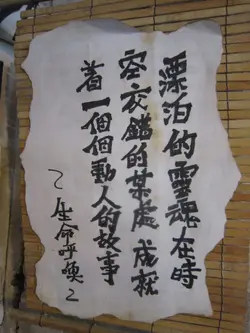 漂泊的靈魂在時
空交錯的某處成就
着一個個動人的故事
~生命呼喚~